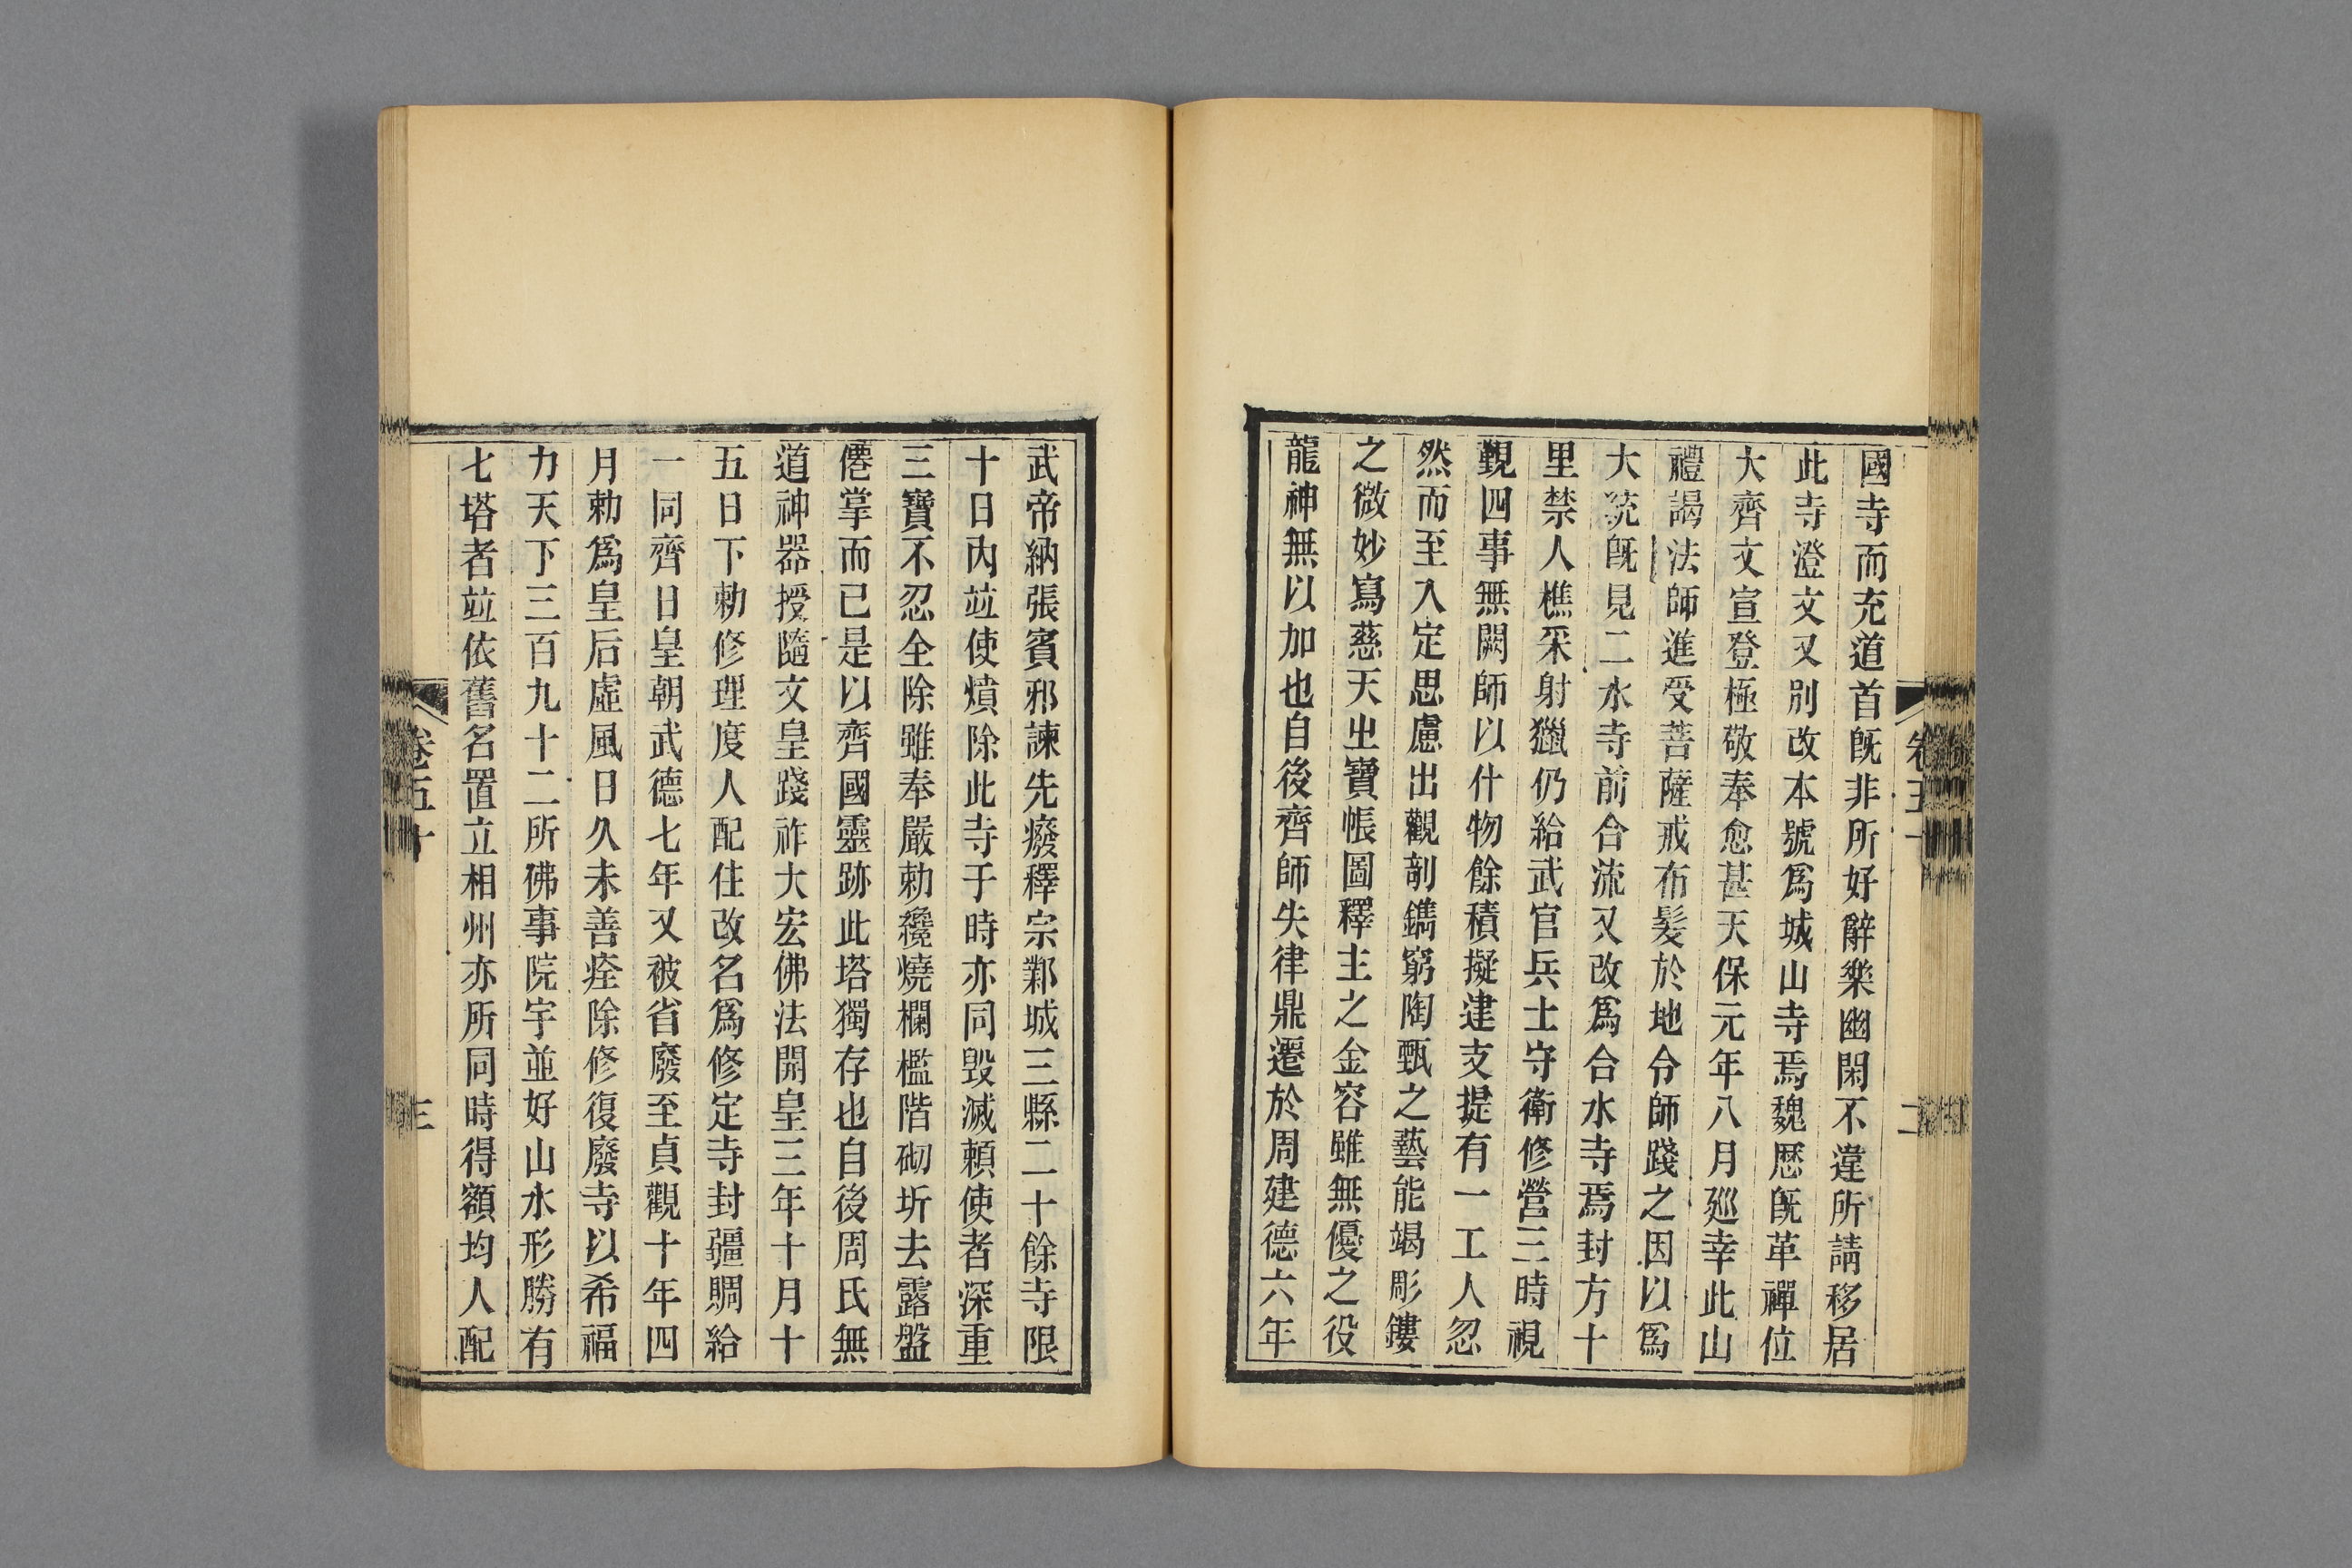 國寺而充道首既非所好辭樂幽閑不違所請移居
此寺澄文又別改本號爲城山寺焉魏歷既革禪位
大齊文宣登極敬奉愈甚天保元年八月廵幸此山
禮謁法師進受菩薩戒布髮於地令師踐之因以爲
大統既見二水寺前合流又改爲合水寺焉封方十
里禁人樵采射獵仍給武官兵士守衛修營三時視
覲四事無闕師以什物餘積擬建支提有一工人忽
然而至入定思慮出觀剞鐫窮陶甄之藝能竭彫鏤
之微妙寫慈天出寶帳圖釋主之金容雖無優之役
龍神無以加也自後齊師失律鼎遷於周建德六年
武帝納張賓邪諫先癈釋宗鄴城三縣二十餘寺限
十日內竝使燌除此寺于時亦同毀滅賴使者深重
三寶不忍全除雖奉嚴勅纔燒欄檻階砌圻去露盤
僊掌而已是以齊國靈跡此塔獨存也自後周氏無
道神器授隨文皇踐祚大宏佛法開皇三年十月十
五日下勅修理度人配住改名爲修定寺封疆賙給
一同齊日皇朝武德七年又被省廢至貞觀十年四
月勅爲皇后虛風日久未善痊除修復廢寺以希福
力天下三百九十二所佛事院宇並好山水形勝有
七塔者竝依舊名置立相州亦所同時得額均人配
卷五十
二
卷五十
三